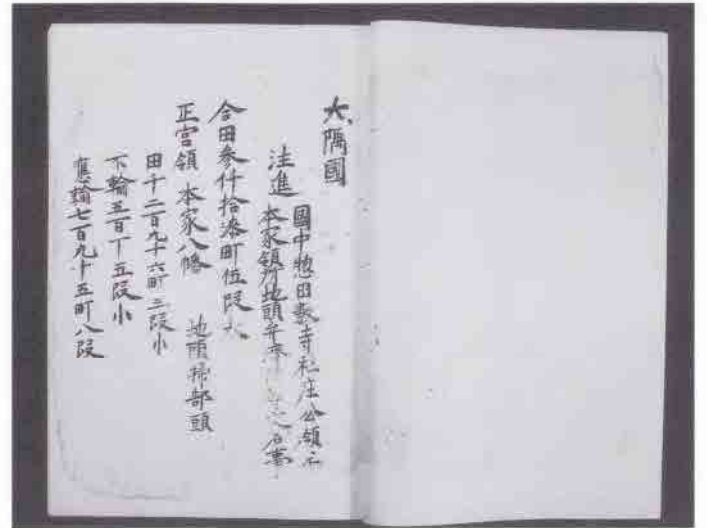 大隅國
注進 國中惣田數寺社庄公領
本家領所地頭弁 名事
合田參仟拾漆町伍段大
正宮領 本家八幡 地頭掃部頭
田千二百九十六町三段小
不輸五百丁五段小
應輸七百九十五町八段